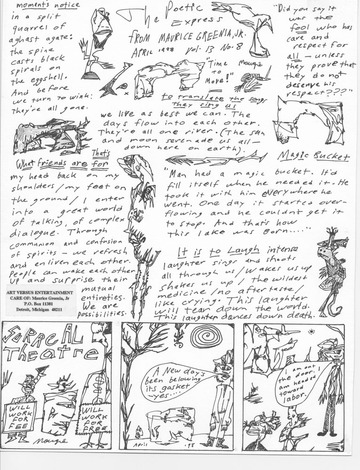 moments notice
in a split
quarrel of
against agate:
the spine
casts black
spirals on
the eggshell.
And before
we turn to wink:
they're all gone.
The Poetic
Express
FROM MAURICE GREENIA, JR.
APRIL 1998 Vol. 13 No. 8
"Did you say it
was the
fool who has
care and
respect for
all — unless
they prove that
they do not
deserve his
respect???"
"Time Maurice
to
Move!"
to translate the song
They sing us
we live as best we can. The
days flow into each other.
They're all one river. (the sun
and moon serenade us all—
down here on earth).
That's
What friends are for
my head back on my
shoulders / my feet on
the ground / I enter
into a great world
of talking, of complex
dialogue. Through
communion and confusion
of spirits — we refresh
and enliven each other.
People can wake each other
up and surprise their
mutual
entireties.
We are
possibilities.
Magic Bucket
"Man had a magic bucket. It'd
fill itself when he needed it. He
took it with him everywhere he
went. One day it started over-
flowing and he couldn't get it
to stop. And that's how
this lake was born...."
It is to Laugh intense
laughter sings and shouts
all through us / wakes us up
shakes us up / the wildest
medicine / no aftertaste /
like crying. This laughter
will tear down the world.
This laughter dances down death.
ART VERSUS ENTERTAINMENT
CARE OF: Maurice Greenia, Jr
P.O. Box 11381
Detroit, Michigan 48211
Surreal
Theatre
WILL
WORK
FOR
FEE
WILL
WORK
FOR
FREE
Maurice
A New days
been believing
its gasket
eyes...
April
'98
I am not
the years. I
am hands of
labor.